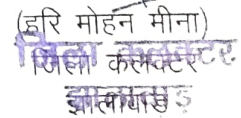 (हरि मोहन मीना)
जिला कलेक्टर
झालावाड़